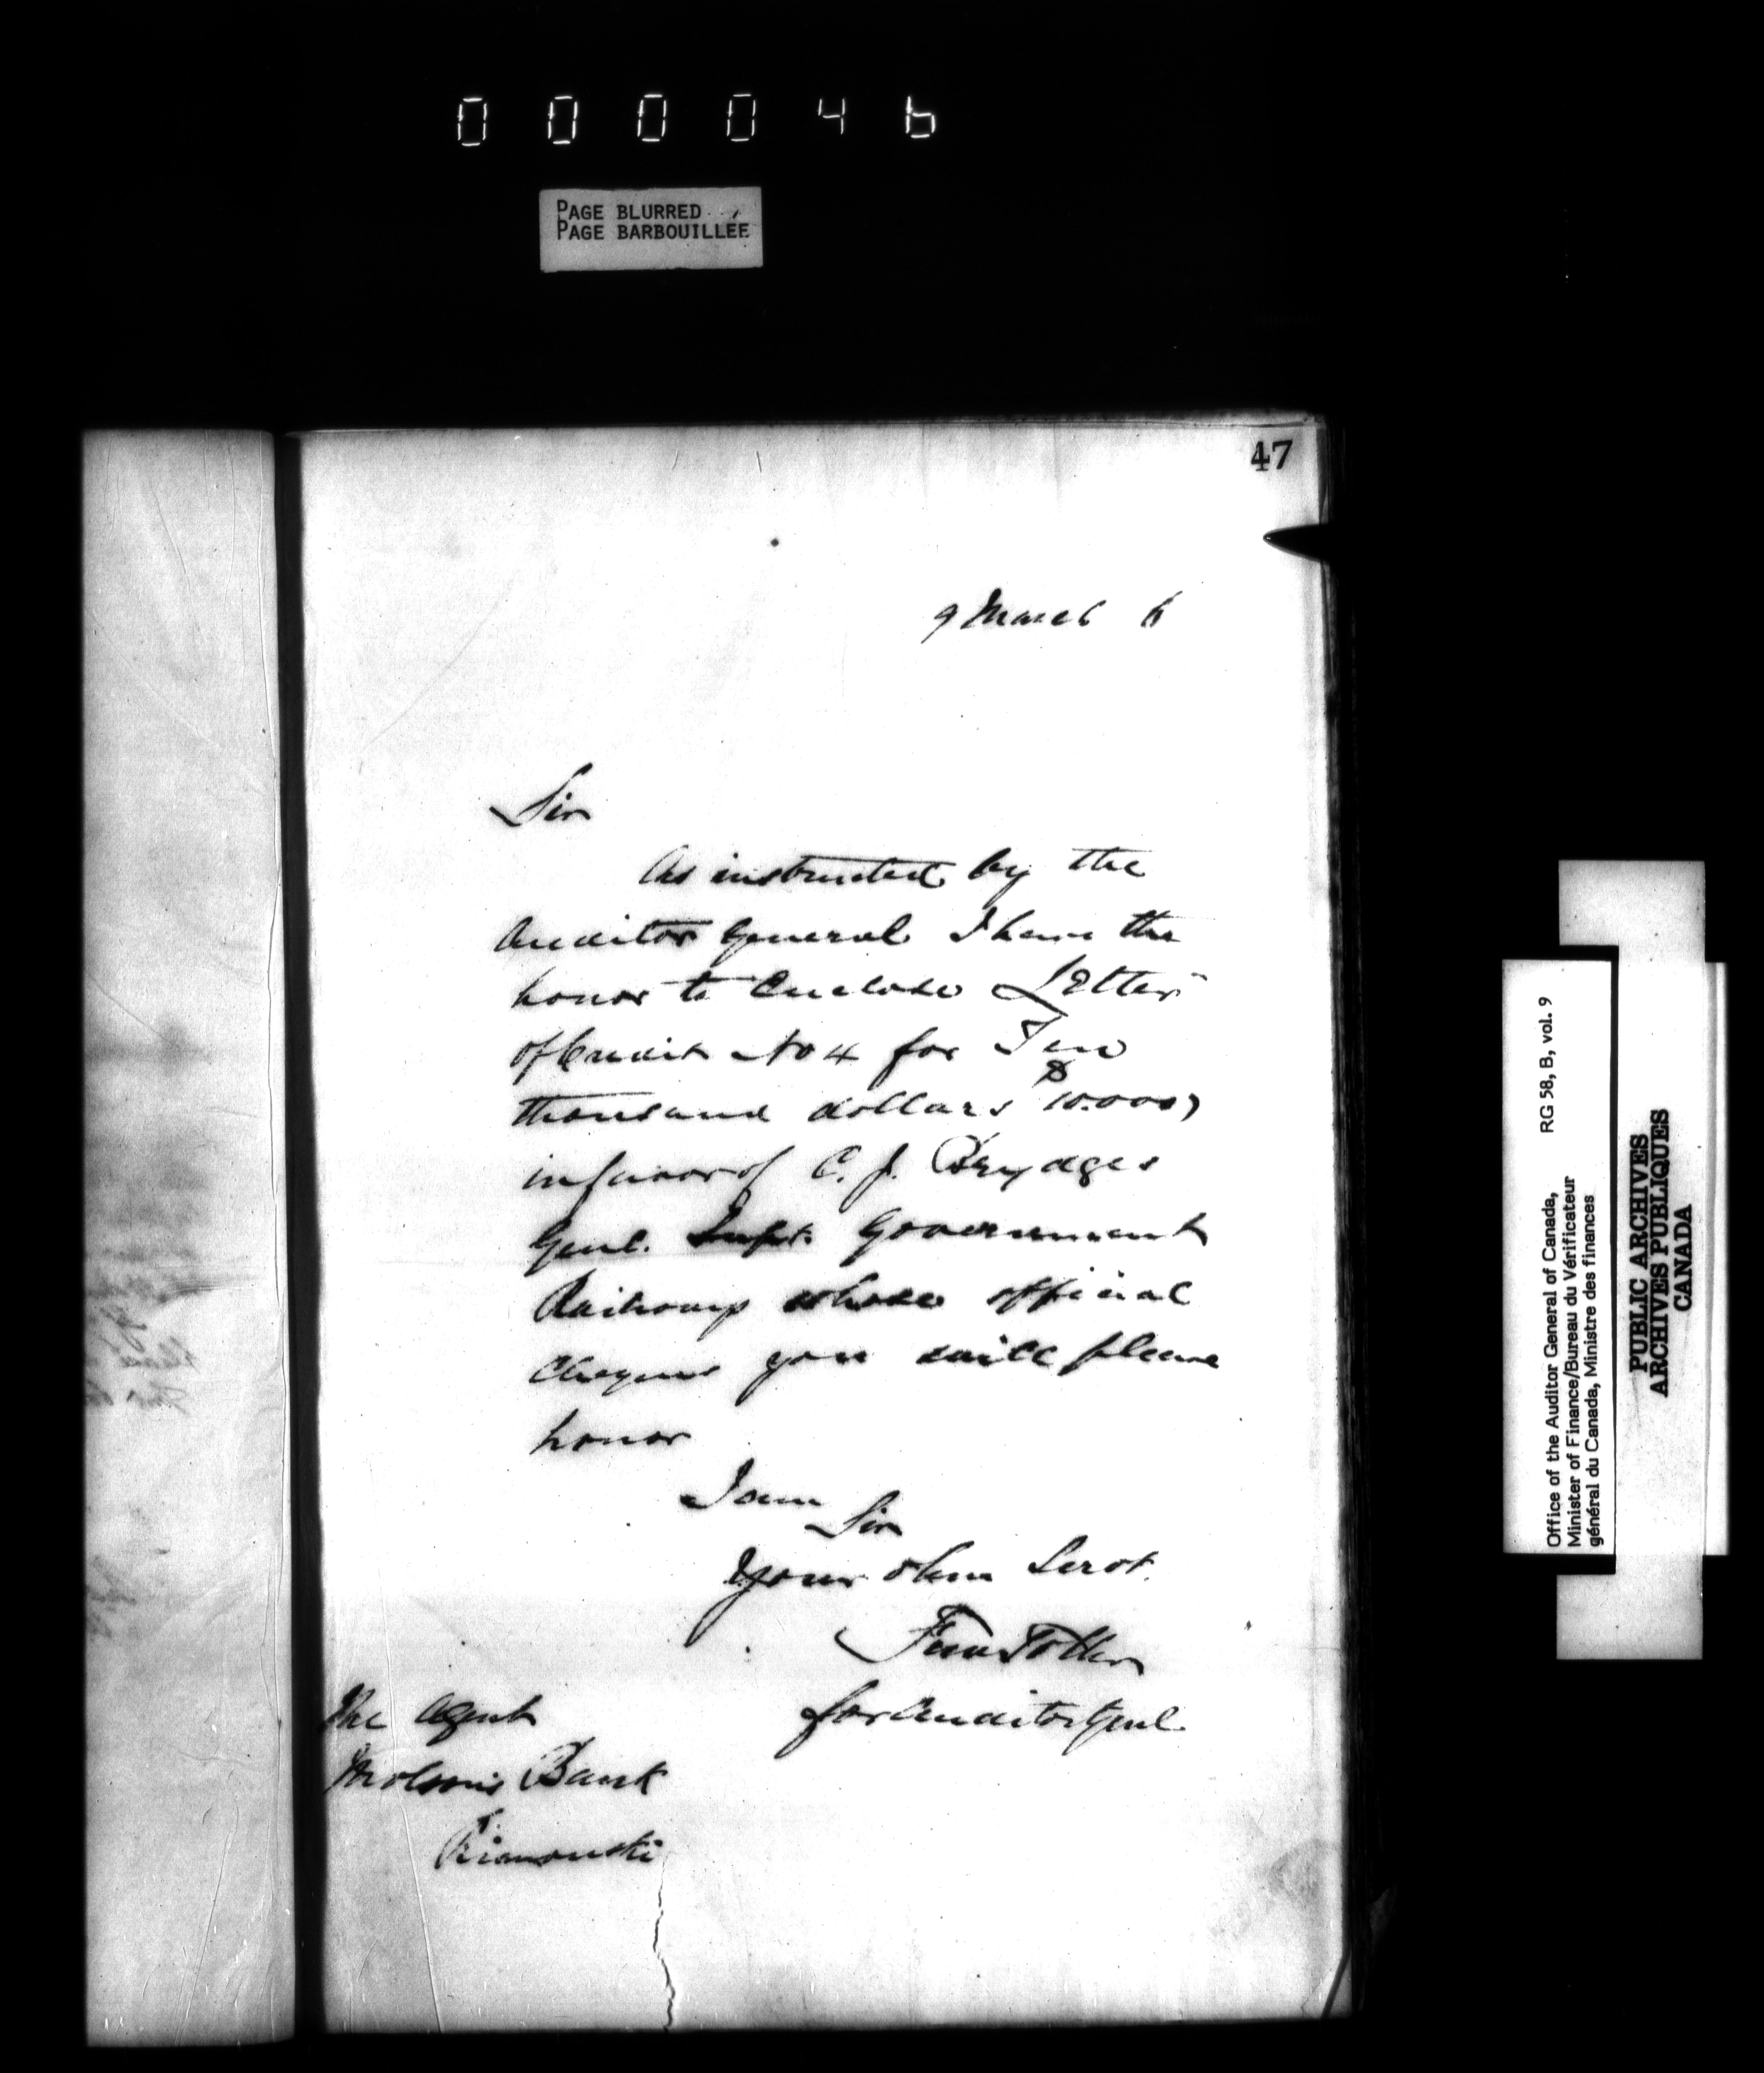 000046
PAGE BLURRED
PAGE BARBOUILLÉE
47
9 March 6
Sir
As instructed by the
Auditor General I have the
honor to Enclose Letter
of Credit No 4 for Ten
thousand dollars $10.000)
in favor of C. J. Brydges
Genl. Supt. Government
Railways whose official
Cheques you will please
honor
I am
Sir
Your obm Servt.
for Auditor Genl.
The Agent
Molson's Bank
Rimouski
Office of the Auditor General of Canada, RG 58, B, vol. 9
Minister of Finance/Bureau du Vérificateur
général du Canada, Ministre des finances
PUBLIC ARCHIVES
ARCHIVES PUBLIQUES
CANADA